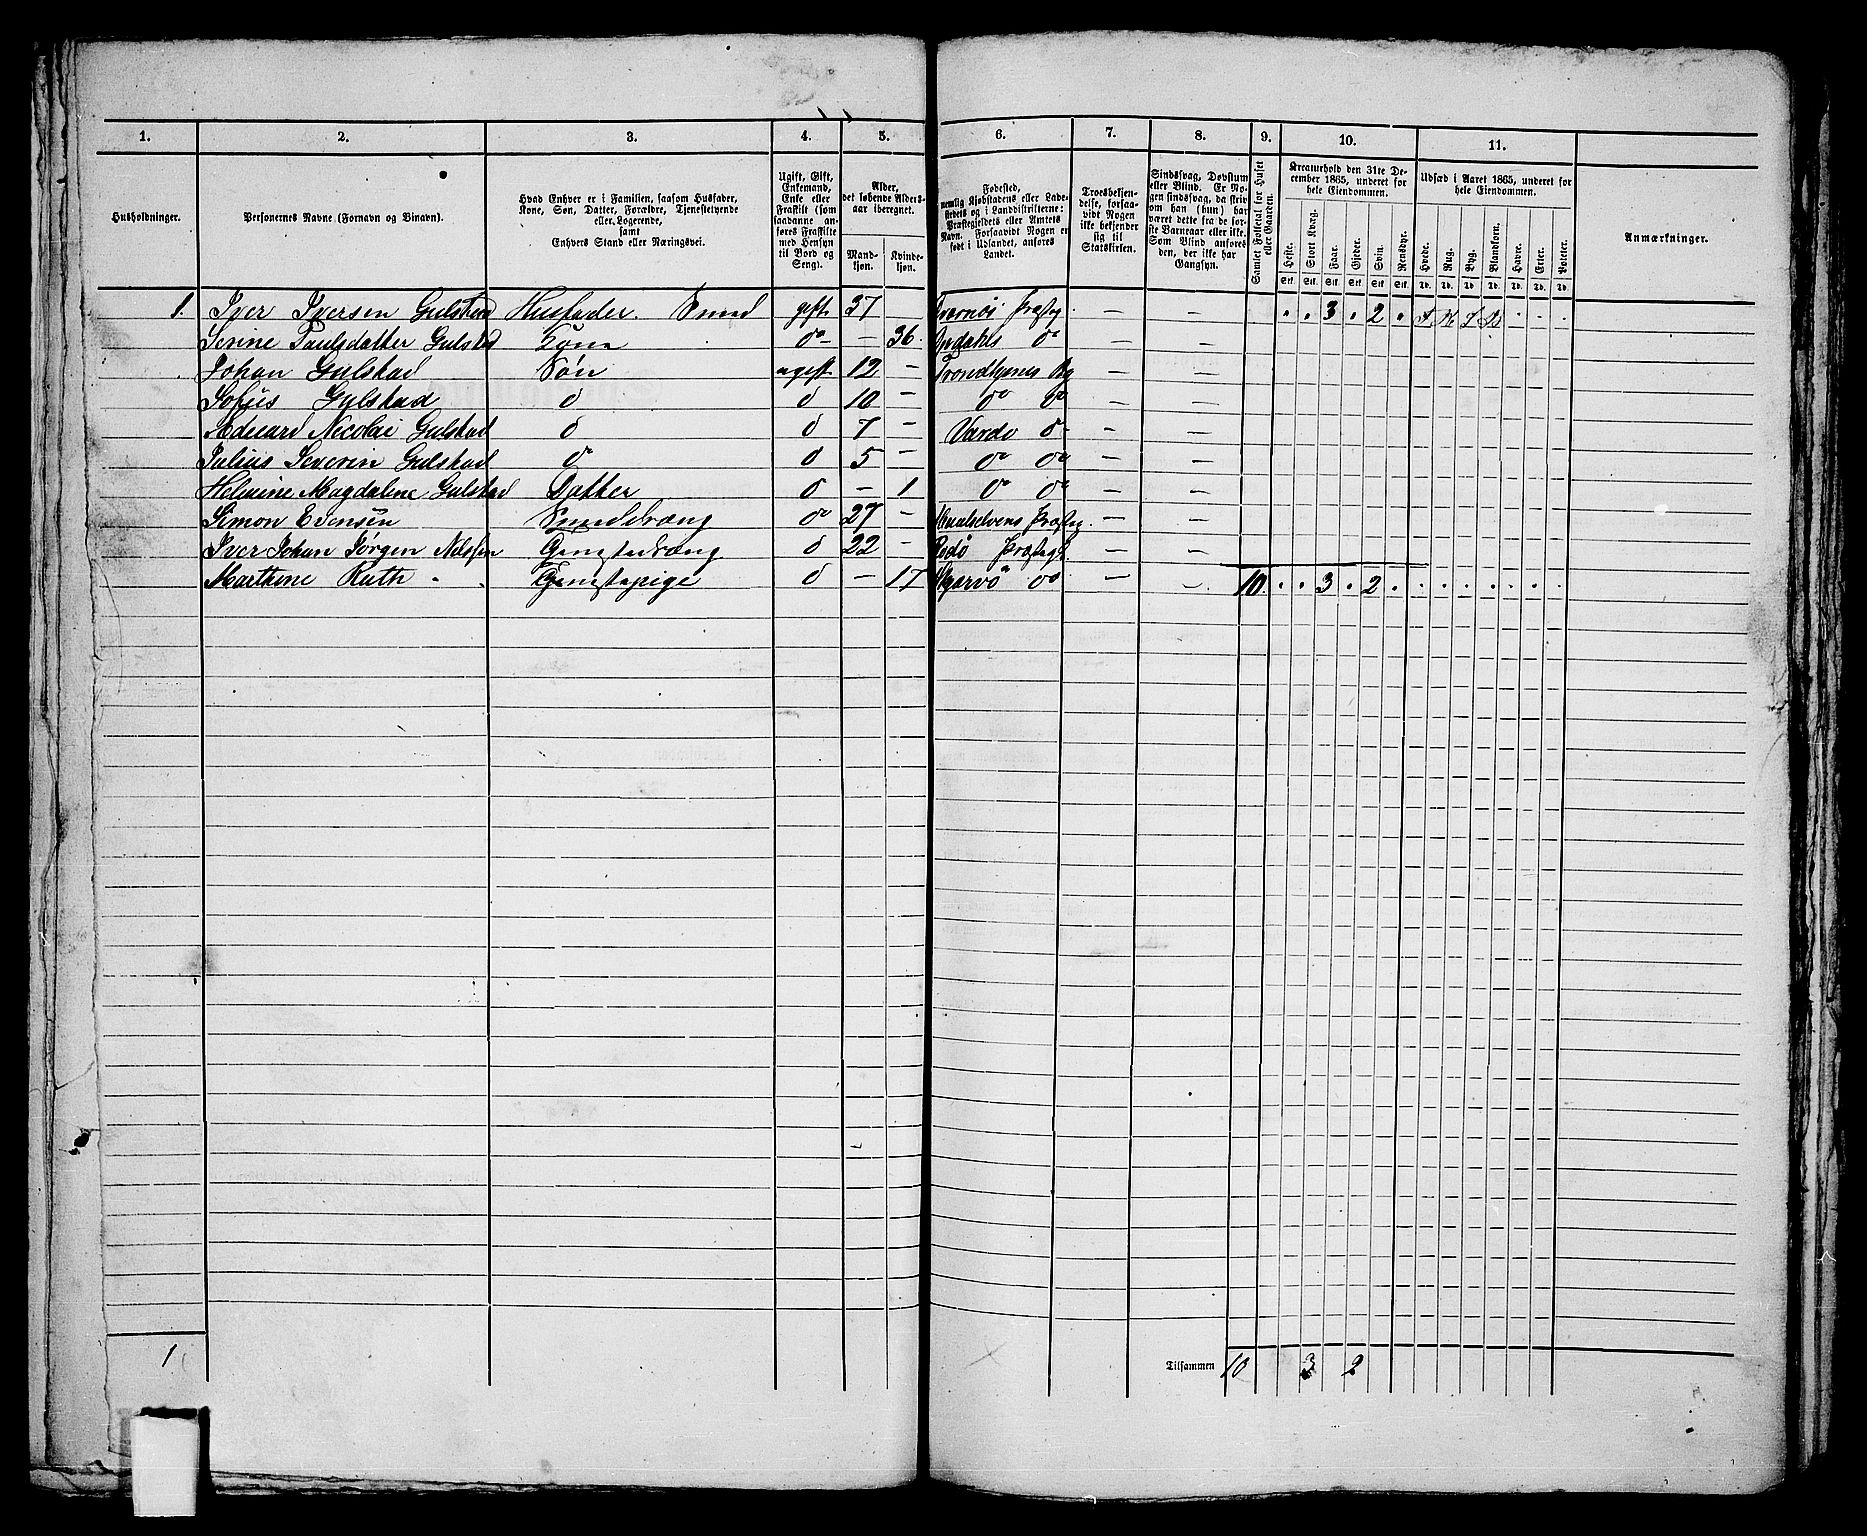 1. 2. 3. 4. 5. 6. 7. 8. 9. 10. 11.
Husholdninger.
Personernes Navne (Fornavn og Binavn).
Hvad Enhver er i Familien, saasom Husfader, Kone, Søn, Datter, Forældre, Tjenestetyende eller Logerende, samt Enhvers Stand eller Næringsvei.
Ugift, Gift, Enkemand, Enke eller Fraskilt (som saadanne anføres Fraskilte med Hensyn til Bord og Seng).
Alder, det løbende Alders-aar iberegnet.
Mand-kjøn. Kvinde-kjøn.
Fødested, nemlig Kjøbstadens eller Ladestedets og i Landdistrikterne: Præstegjeldets eller Amtets Navn. Forsaavidt Nogen er født i Udlandet, anføres Landet.
Troesbekjendelse, forsaavidt Nogen ikke bekjender sig til Statskirken.
Sindssvag, Døvstum eller Blind. Er Nogen sindssvag, da skrives om han (hun) har været dette fra de første Barneaar eller ikke. Som Blind anføres den, der ikke har Gangsyn.
Samlet Folketal for Huset eller Gaarden.
Kreaturhold den 31te December 1865, underet for hele Eiendommen.
Heste. Stort Kvæg. Faar. Gjeder. Svin. Rensdyr.
Udsæd i Aaret 1865, underet for hele Eiendommen.
Hvede. Rug. Byg. Blandkorn. Havre. Erter. Poteter.
Anmærkninger.
Stk. Stk. Stk. Stk. Stk. Stk. Td. Td. Td. Td. Td. Td. Td.
1. Iver Iversen Gulstad Husfader. Smed gift 37 Præstg. — — . . 3 . 2 .
Serine Paulsdatter Gulstad Kone do — 36. Opdahls do — —
Johan Gulstad Søn ugift 12 — Trondhjems By — —
Sofus Gulstad d d 10 — do do — —
Edvard Nicolai Gulstad d d 7 — Vardø d — —
Julius Severin Gulstad do d 5 — do do — —
Helmine Magdalene Gulstad Datter d — 1 do do — —
Simon Evensen Smeddreng do 27 — Maalselvens Præstg. — —
Iver Johan Jørgen Nilssen Tjenestedreng d 22 — Bodø Præstegj. — —
Marthine Ruth Tjenestepige d — 17 Skjærvø do — — 10. . . 3 . 2 . . . . . . . .
1 Tilsammen 10 3 2